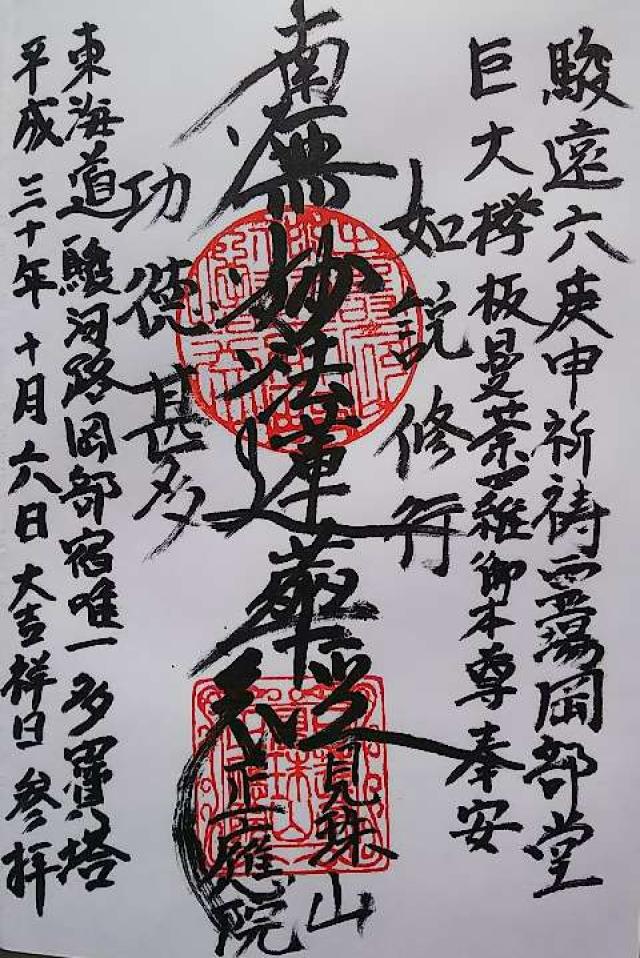 駿遠六庚申祈祷霊場岡部堂
巨大欅板曼荼羅御本尊奉安
如説修行
南無妙法蓮華経
功徳甚多
見珠山
正應院
東海道駿河路岡部宿唯一多寳塔
平成三十年十月六日大吉祥日参拝